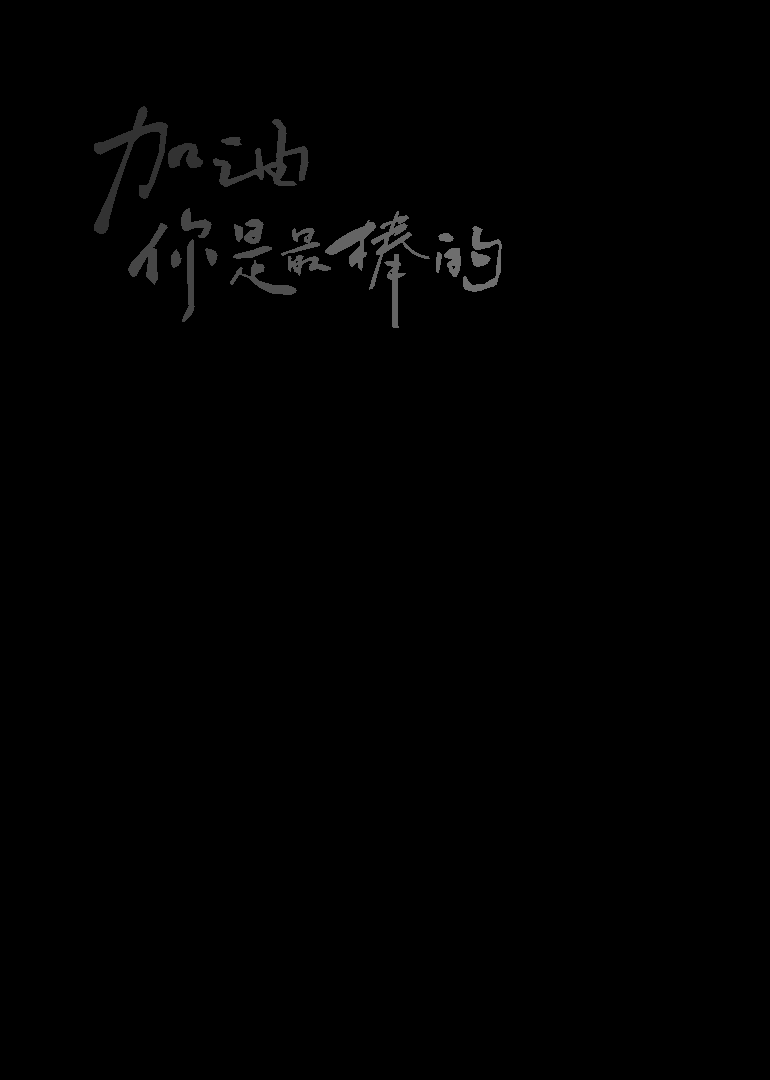 加油
你是最棒的